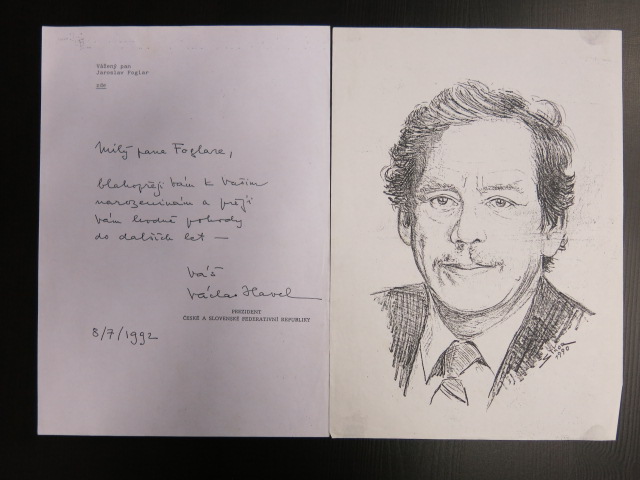 Vážený pan
Jaroslav Foglar
zde
Milý pane Foglare,
blahopřeji Vám k Vašim
narozeninám a přeji
Vám hodně pohody
do dalších let —
Váš
Václav Havel
PREZIDENT
ČESKÉ A SLOVENSKÉ FEDERATIVNÍ REPUBLIKY
8/7/1992
1990